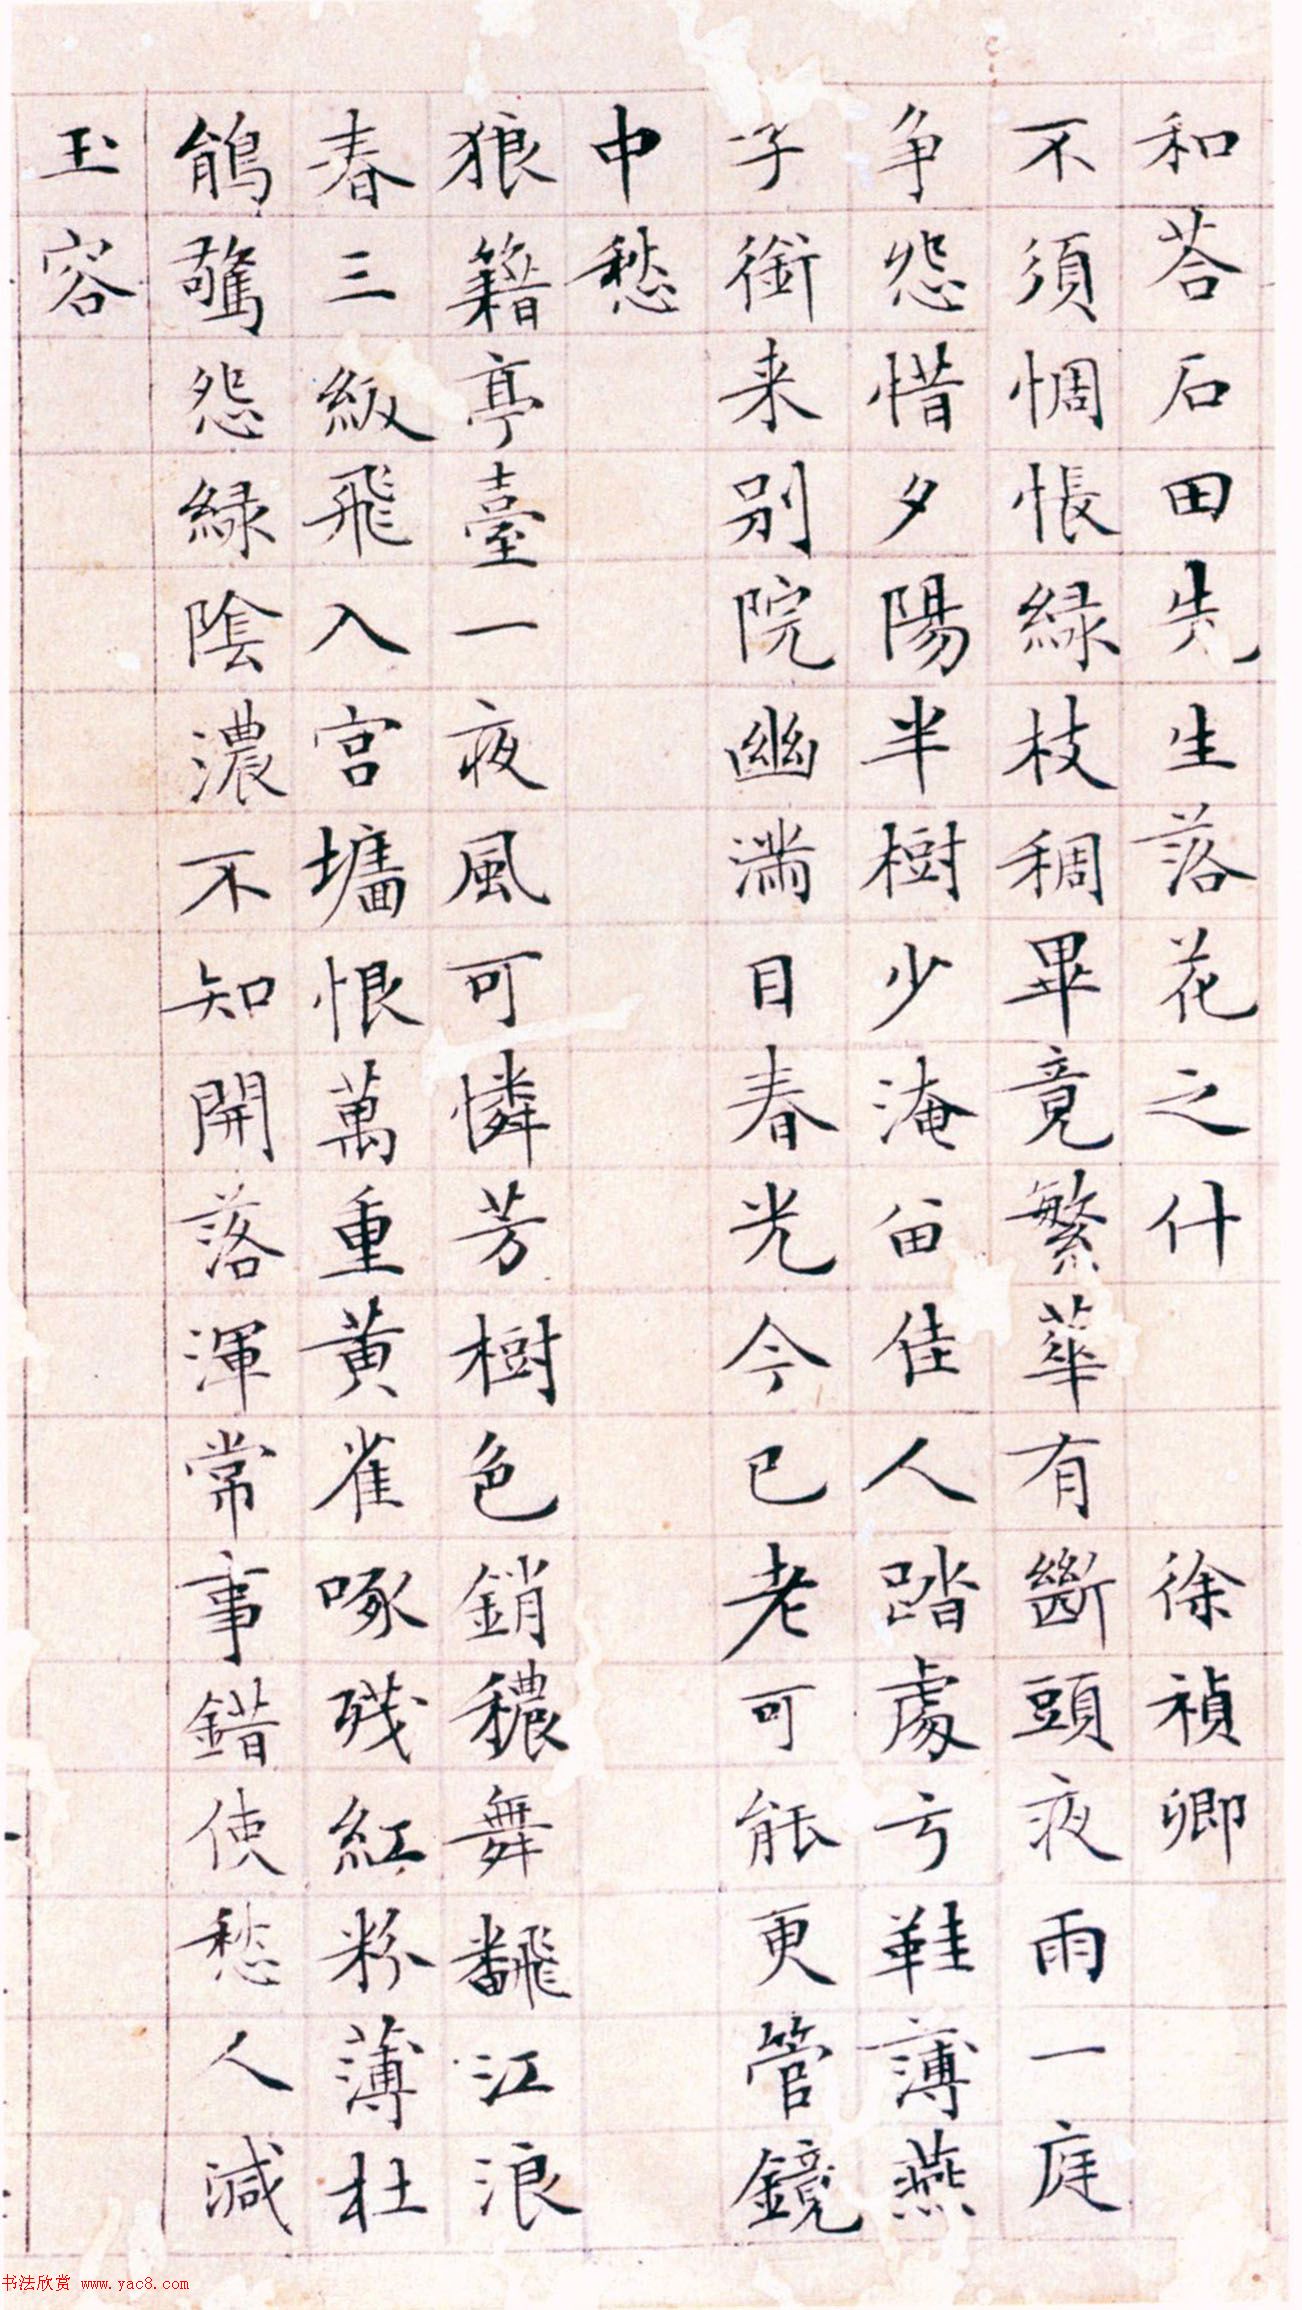 和荅石田先生落花之什　徐禎卿
不須惆悵緑枝稠畢竟繁華有斷頭夜雨一庭
争怨惜夕陽半樹少淹留佳人踏處亏鞋薄燕
子銜来别院幽満目春光今已老可能更管鏡
中愁
狼籍亭臺一夜風可憐芳樹色銷穠舞飜江浪
春三級飛入宫墻恨萬重黄雀啄残紅粉薄杜
鵑驚怨緑陰濃不知開落渾常事錯使愁人減
玉容
书法欣赏 www.yac8.com